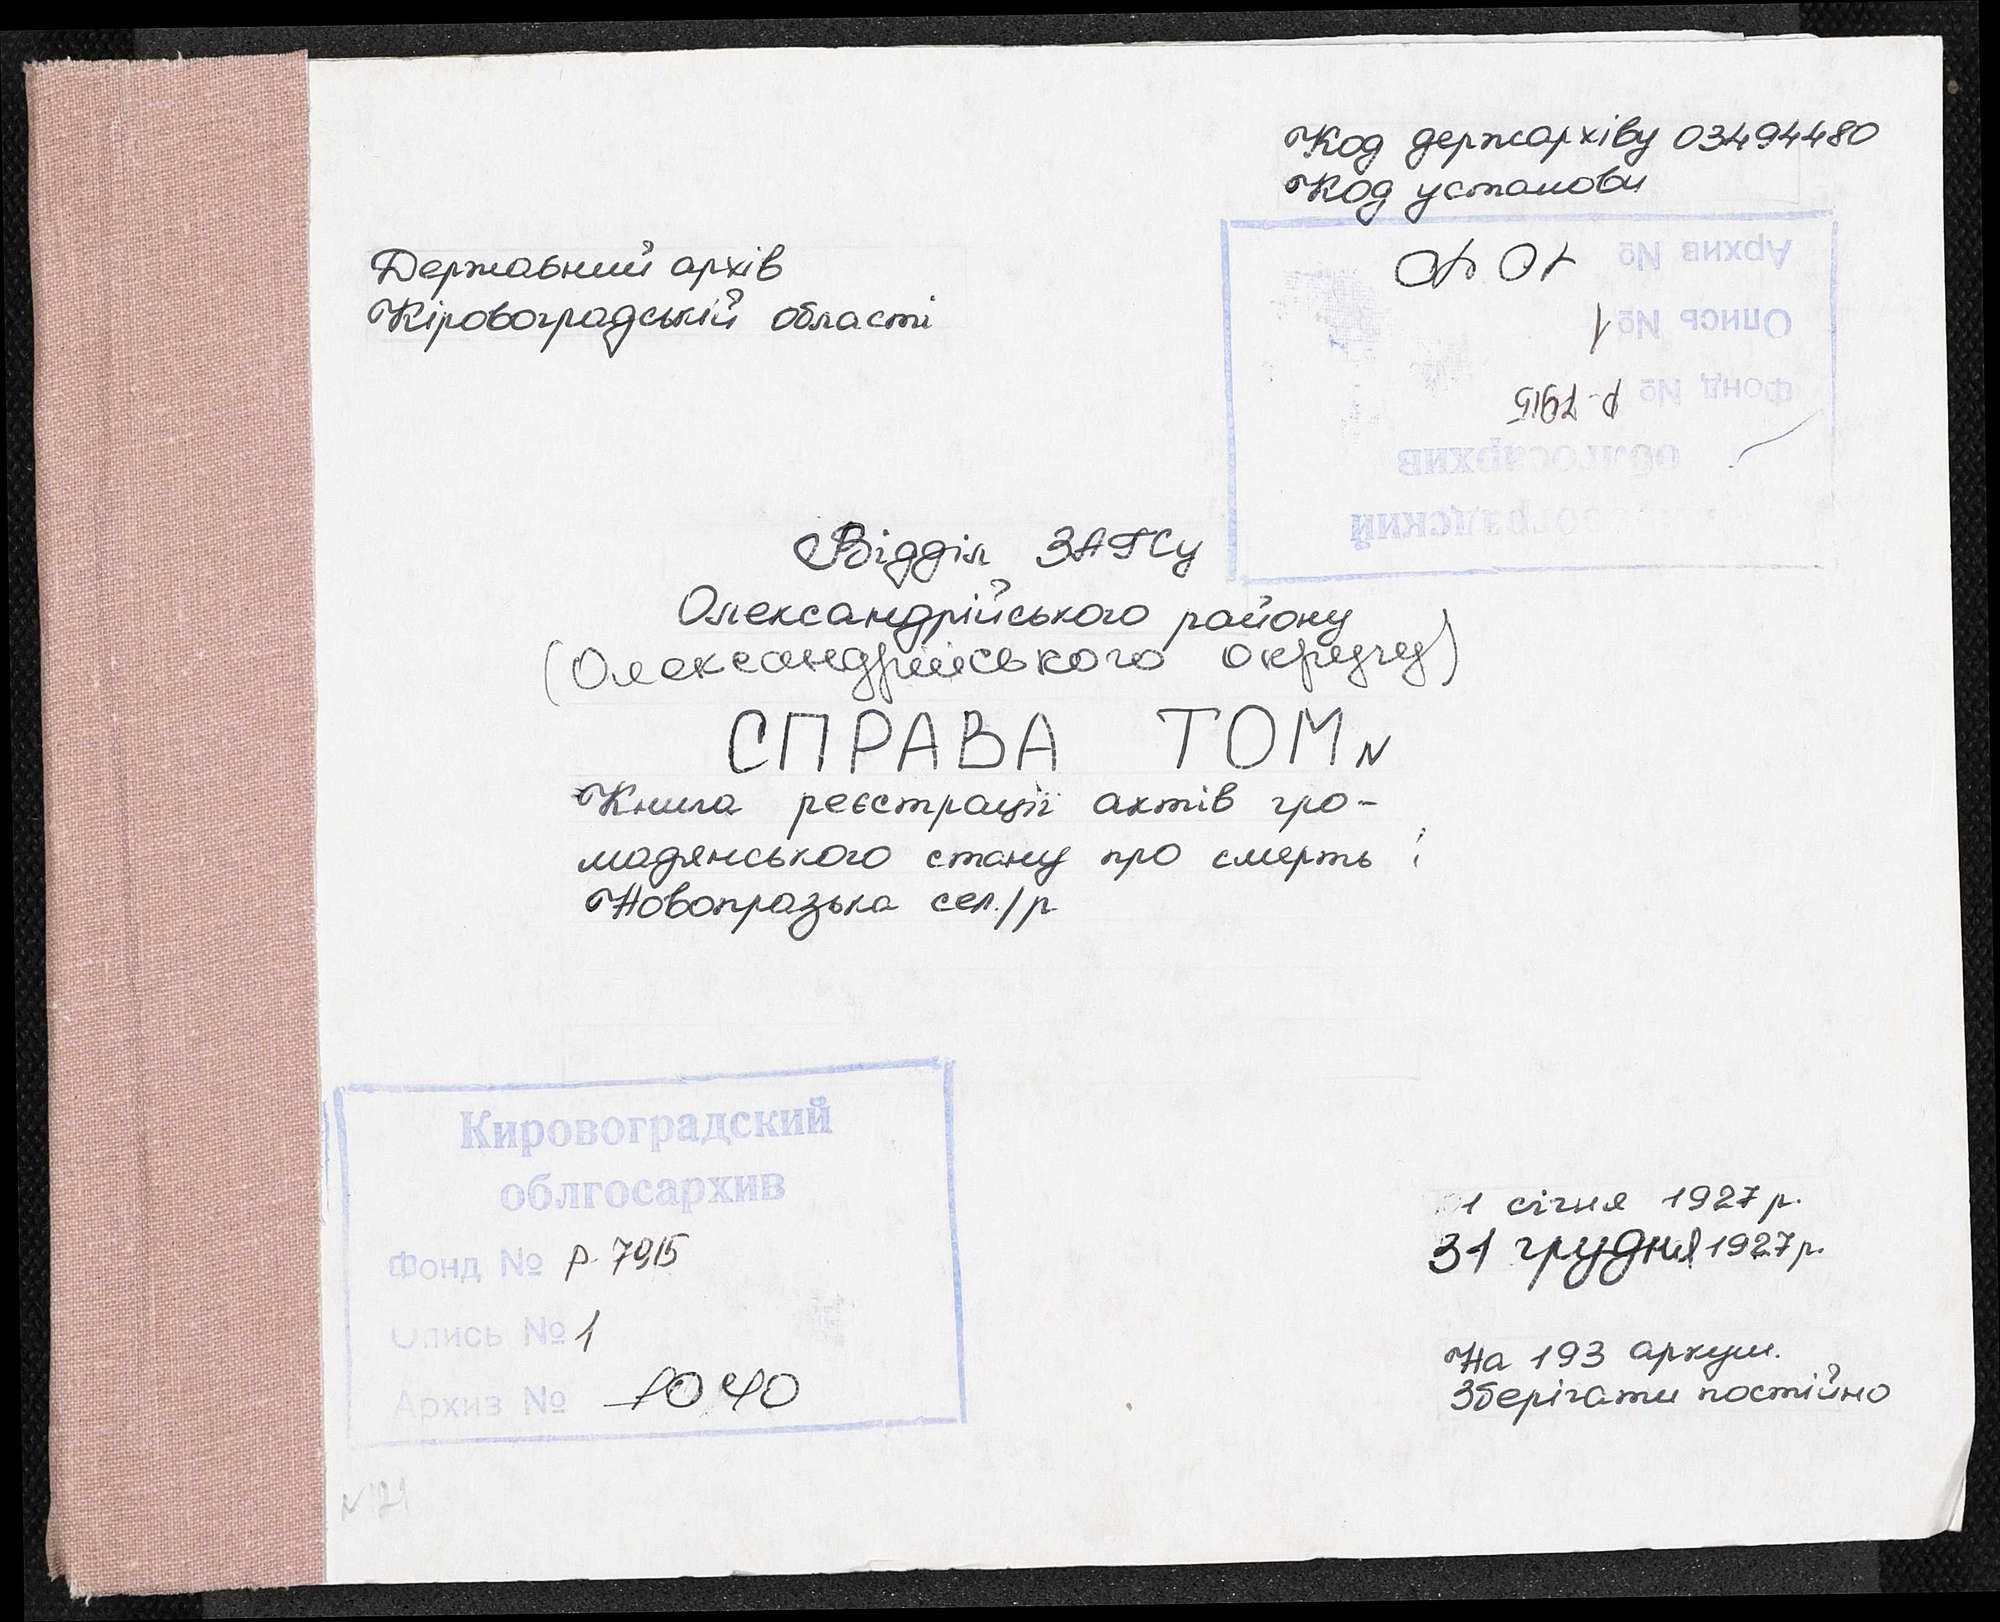 Код держархіву 03494480
Код установи
Архив № 1040
Опись № 1
Фонд № р-7915
облгосархив
Державний архів
Кіровоградській області
Відділ ЗАГСу
Олександрійського району
(Олександрійського округу)
СПРАВА ТОМ N
Книга реєстрації актів гро-
мадянського стану про смерть
Новопразька сел./р
Кировоградский
облгосархив
Фонд № р-7915
Опись № 1
Архив № 1040
1 січня 1927 р.
31 грудня 1927 р.
На 193 аркуш.
Зберігати постійно
N 121